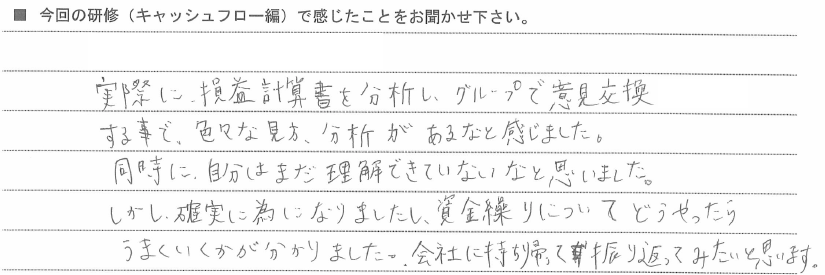 ■ 今回の研修（キャッシュフロー編）で感じたことをお聞かせ下さい。
実際に、損益計算書を分析し、グループで意見交換
する事で、色々な見方、分析があるなと感じました。
同時に、自分はまだ理解できていないなと思いました。
しかし、確実に為になりましたし、資金繰りについてどうやったら
うまくいくかが分かりました。会社に持ち帰って振り返ってみたいと思います。